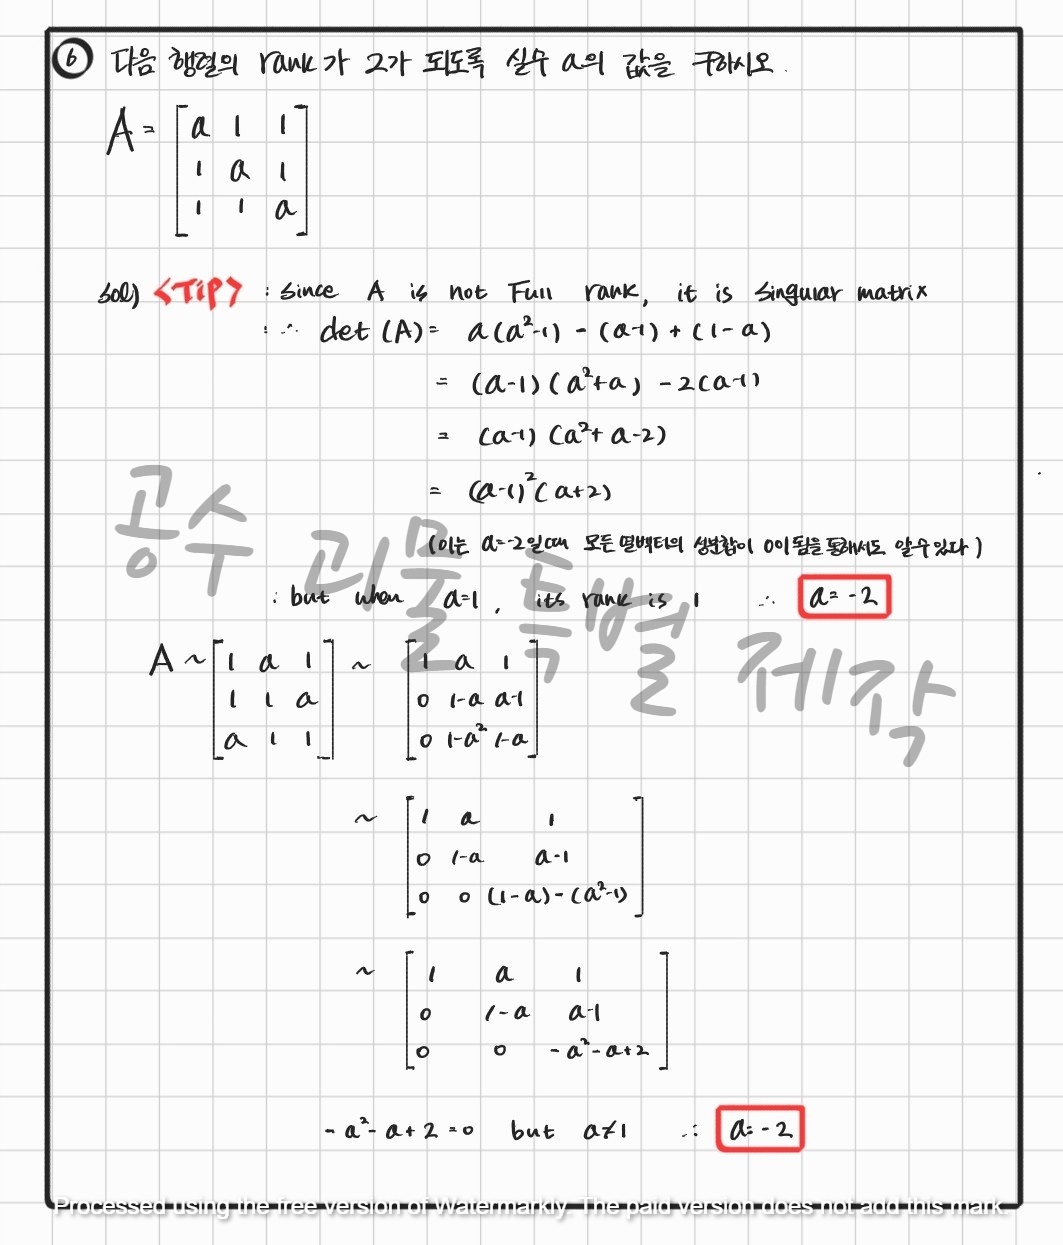 ⑥ 다음 행렬의 rank가 2가 되도록 실수 a의 값을 구하시오.
A = [a 1 1
1 a 1
1 1 a]
sol) <TIP> : since A is not Full rank, it is singular matrix
: ∴ det (A) = a(a²-1) - (a-1) + (1-a)
= (a-1)(a²+a) - 2(a-1)
= (a-1)(a²+a-2)
= (a-1)²(a+2)
(이는 a=-2일때 모든 열벡터의 성분합이 0이 됨을 통해서도 알 수 있다)
: but when a=1, its rank is 1 ∴ a=-2
공수 괴물 특별 제작
A ~ [1 a 1 ~ [1 a 1
1 1 a 0 1-a a-1
a 1 1] 0 1-a² 1-a]
~ [1 a 1
0 1-a a-1
0 0 (1-a)-(a²-1)]
~ [1 a 1
0 1-a a-1
0 0 -a²-a+2]
-a²-a+2=0 but a≠1 ∴ a=-2
Processed using the free version of Watermarkly. The paid version does not add this mark.